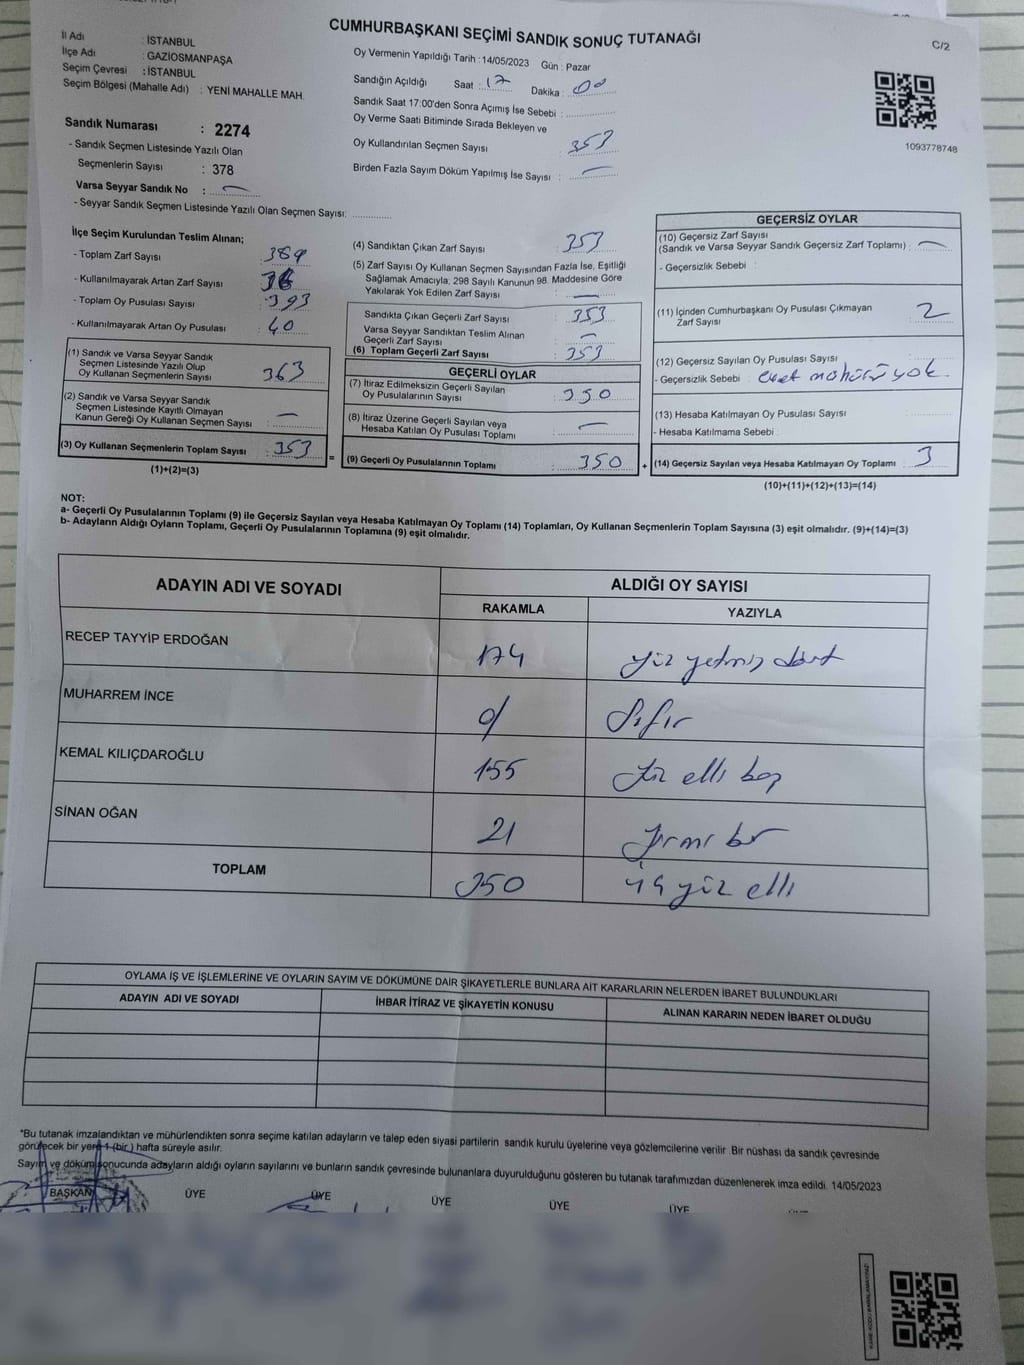 CUMHURBAŞKANI SEÇİMİ SANDIK SONUÇ TUTANAĞI
C/2
İl Adı : İSTANBUL
İlçe Adı : GAZİOSMANPAŞA
Seçim Çevresi : İSTANBUL
Seçim Bölgesi (Mahalle Adı) : YENİ MAHALLE MAH.
Sandık Numarası : 2274
- Sandık Seçmen Listesinde Yazılı Olan
Seçmenlerin Sayısı : 378
Varsa Seyyar Sandık No : —
- Seyyar Sandık Seçmen Listesinde Yazılı Olan Seçmen Sayısı:
Oy Vermenin Yapıldığı Tarih : 14/05/2023 Gün : Pazar
Sandığın Açıldığı Saat : 17 Dakika : 00
Sandık Saat 17:00'den Sonra Açımış İse Sebebi :
Oy Verme Saati Bitiminde Sırada Bekleyen ve
Oy Kullandırılan Seçmen Sayısı : 353
Birden Fazla Sayım Döküm Yapılmış İse Sayısı : —
1093778748
İlçe Seçim Kurulundan Teslim Alınan;
- Toplam Zarf Sayısı : 389
- Kullanılmayarak Artan Zarf Sayısı : 36
- Toplam Oy Pusulası Sayısı : 393
- Kullanılmayarak Artan Oy Pusulası : 40
(1) Sandık ve Varsa Seyyar Sandık
Seçmen Listesinde Yazılı Olup
Oy Kullanan Seçmenlerin Sayısı : 363
(2) Sandık ve Varsa Seyyar Sandık
Seçmen Listesinde Kayıtlı Olmayan
Kanun Gereği Oy Kullanan Seçmen Sayısı : —
(3) Oy Kullanan Seçmenlerin Toplam Sayısı : 353
(1)+(2)=(3)
(4) Sandıktan Çıkan Zarf Sayısı : 353
(5) Zarf Sayısı Oy Kullanan Seçmen Sayısından Fazla İse, Eşitliği
Sağlamak Amacıyla, 298 Sayılı Kanunun 98. Maddesine Göre
Yakılarak Yok Edilen Zarf Sayısı : —
Sandıkta Çıkan Geçerli Zarf Sayısı : 353
Varsa Seyyar Sandıktan Teslim Alınan
Geçerli Zarf Sayısı : —
(6) Toplam Geçerli Zarf Sayısı : 353
GEÇERLİ OYLAR
(7) İtiraz Edilmeksizin Geçerli Sayılan
Oy Pusulalarının Sayısı : 350
(8) İtiraz Üzerine Geçerli Sayılan veya
Hesaba Katılan Oy Pusulası Toplamı : —
= (9) Geçerli Oy Pusulalarının Toplamı : 350 +
GEÇERSİZ OYLAR
(10) Geçersiz Zarf Sayısı
(Sandık ve Varsa Seyyar Sandık Geçersiz Zarf Toplamı) : —
- Geçersizlik Sebebi :
(11) İçinden Cumhurbaşkanı Oy Pusulası Çıkmayan
Zarf Sayısı : 2
(12) Geçersiz Sayılan Oy Pusulası Sayısı :
- Geçersizlik Sebebi : evet mühürü yok.
(13) Hesaba Katılmayan Oy Pusulası Sayısı :
- Hesaba Katılmama Sebebi :
(14) Geçersiz Sayılan veya Hesaba Katılmayan Oy Toplamı : 3
(10)+(11)+(12)+(13)=(14)
NOT:
a- Geçerli Oy Pusulalarının Toplamı (9) ile Geçersiz Sayılan veya Hesaba Katılmayan Oy Toplamı (14) Toplamları, Oy Kullanan Seçmenlerin Toplam Sayısına (3) eşit olmalıdır. (9)+(14)=(3)
b- Adayların Aldığı Oyların Toplamı, Geçerli Oy Pusulalarının Toplamına (9) eşit olmalıdır.
ADAYIN ADI VE SOYADI ALDIĞI OY SAYISI
RAKAMLA YAZIYLA
RECEP TAYYİP ERDOĞAN 174 yüz yetmiş dört
MUHARREM İNCE 0/ Sıfır
KEMAL KILIÇDAROĞLU 155 yüz elli beş
SİNAN OĞAN 21 yirmi bir
TOPLAM 350 üç yüz elli
OYLAMA İŞ VE İŞLEMLERİNE VE OYLARIN SAYIM VE DÖKÜMÜNE DAİR ŞİKAYETLERLE BUNLARA AİT KARARLARIN NELERDEN İBARET BULUNDUKLARI
ADAYIN ADI VE SOYADI İHBAR İTİRAZ VE ŞİKAYETİN KONUSU ALINAN KARARIN NEDEN İBARET OLDUĞU
*Bu tutanak imzalandıktan ve mühürlendikten sonra seçime katılan adayların ve talep eden siyasi partilerin sandık kurulu üyelerine veya gözlemcilerine verilir. Bir nüshası da sandık çevresinde
görülecek bir yere 1 (bir ) hafta süreyle asılır.
Sayım ve döküm sonucunda adayların aldığı oyların sayılarını ve bunların sandık çevresinde bulunanlara duyurulduğunu gösteren bu tutanak tarafımızdan düzenlenerek imza edildi. 14/05/2023
BAŞKAN ÜYE ÜYE ÜYE ÜYE ÜYE